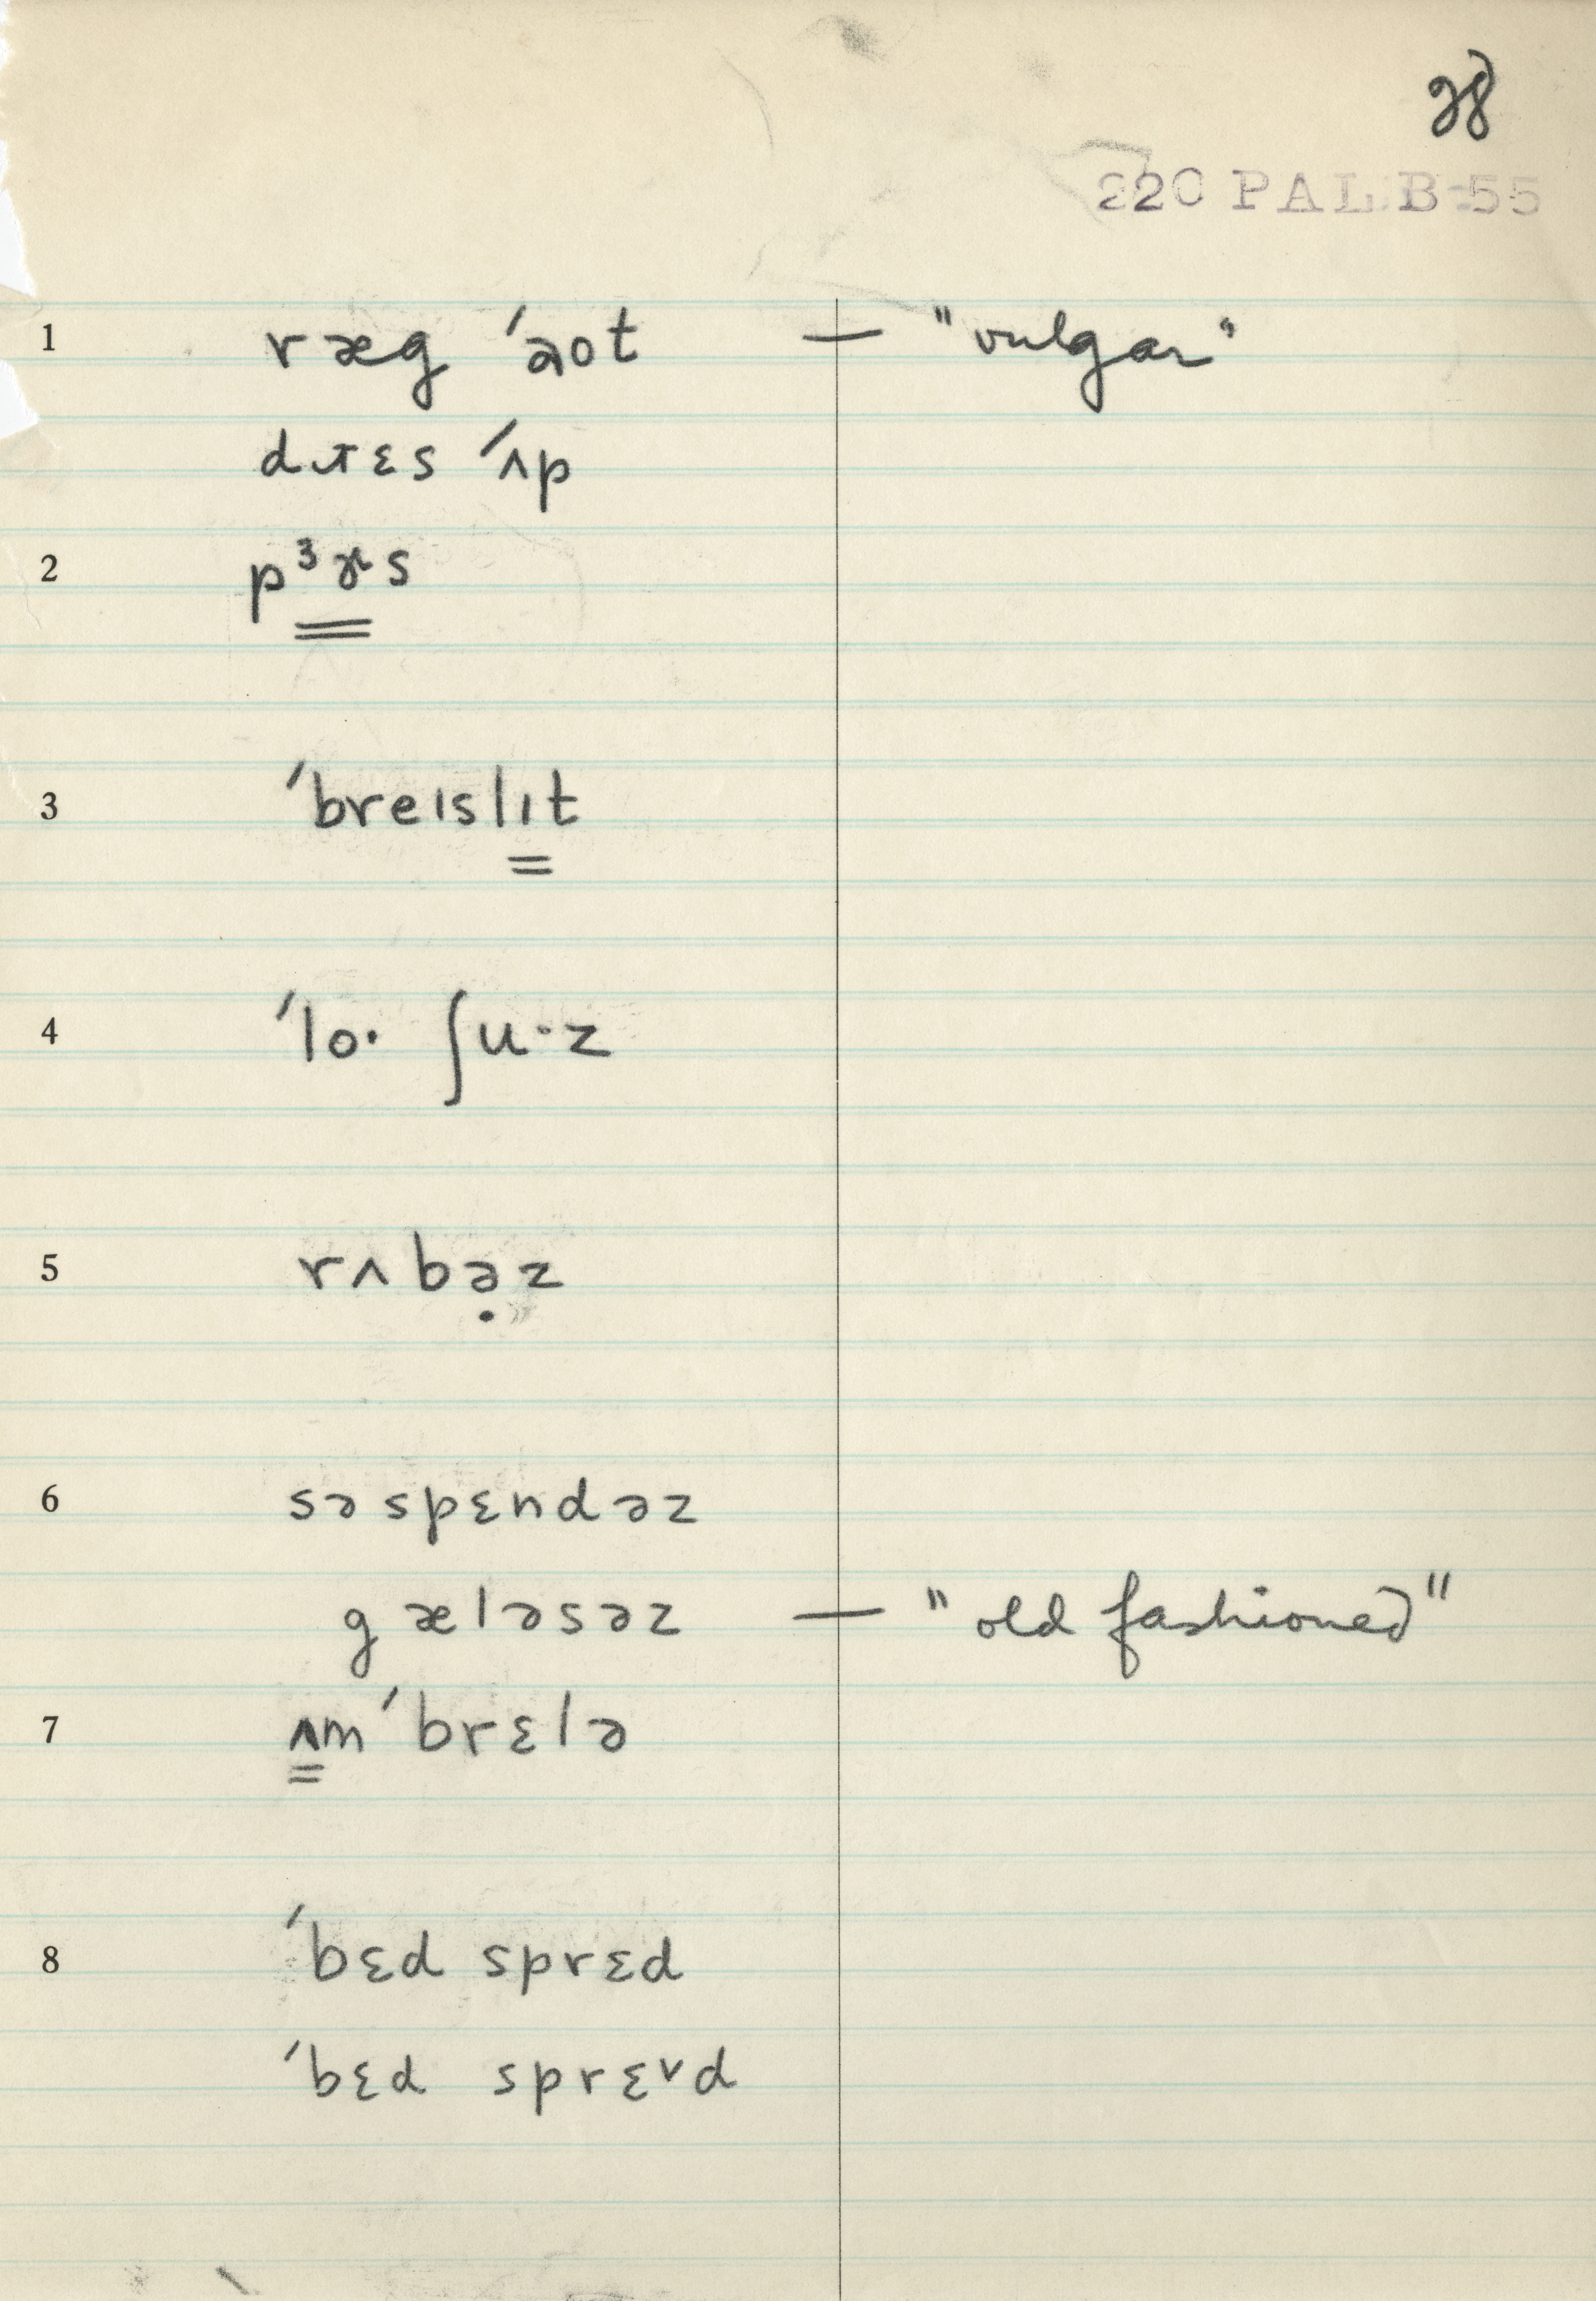 28
220 PAL B-55
1 ræg ˈəot — "vulgar"
dɹɛs ˈʌp
2 pɜɚs
3 ˈbreɪslɪt
4 ˈlo· ʃu·z
5 rʌbə̣z
6 səspɛndəz
gæləsəz — "old fashioned"
7 ʌmˈbrɛlə
8 ˈbɛd sprɛd
ˈbɛd sprɛᵛd